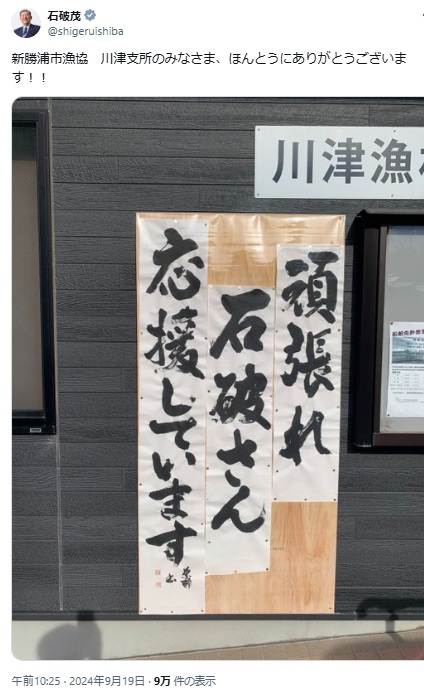 石破茂
@shigeruishiba
新勝浦市漁協　川津支所のみなさま、ほんとうにありがとうございま
す！！
川津漁村
頑張れ
石破さん
応援しています
午前10:25 · 2024年9月19日 · 9万 件の表示